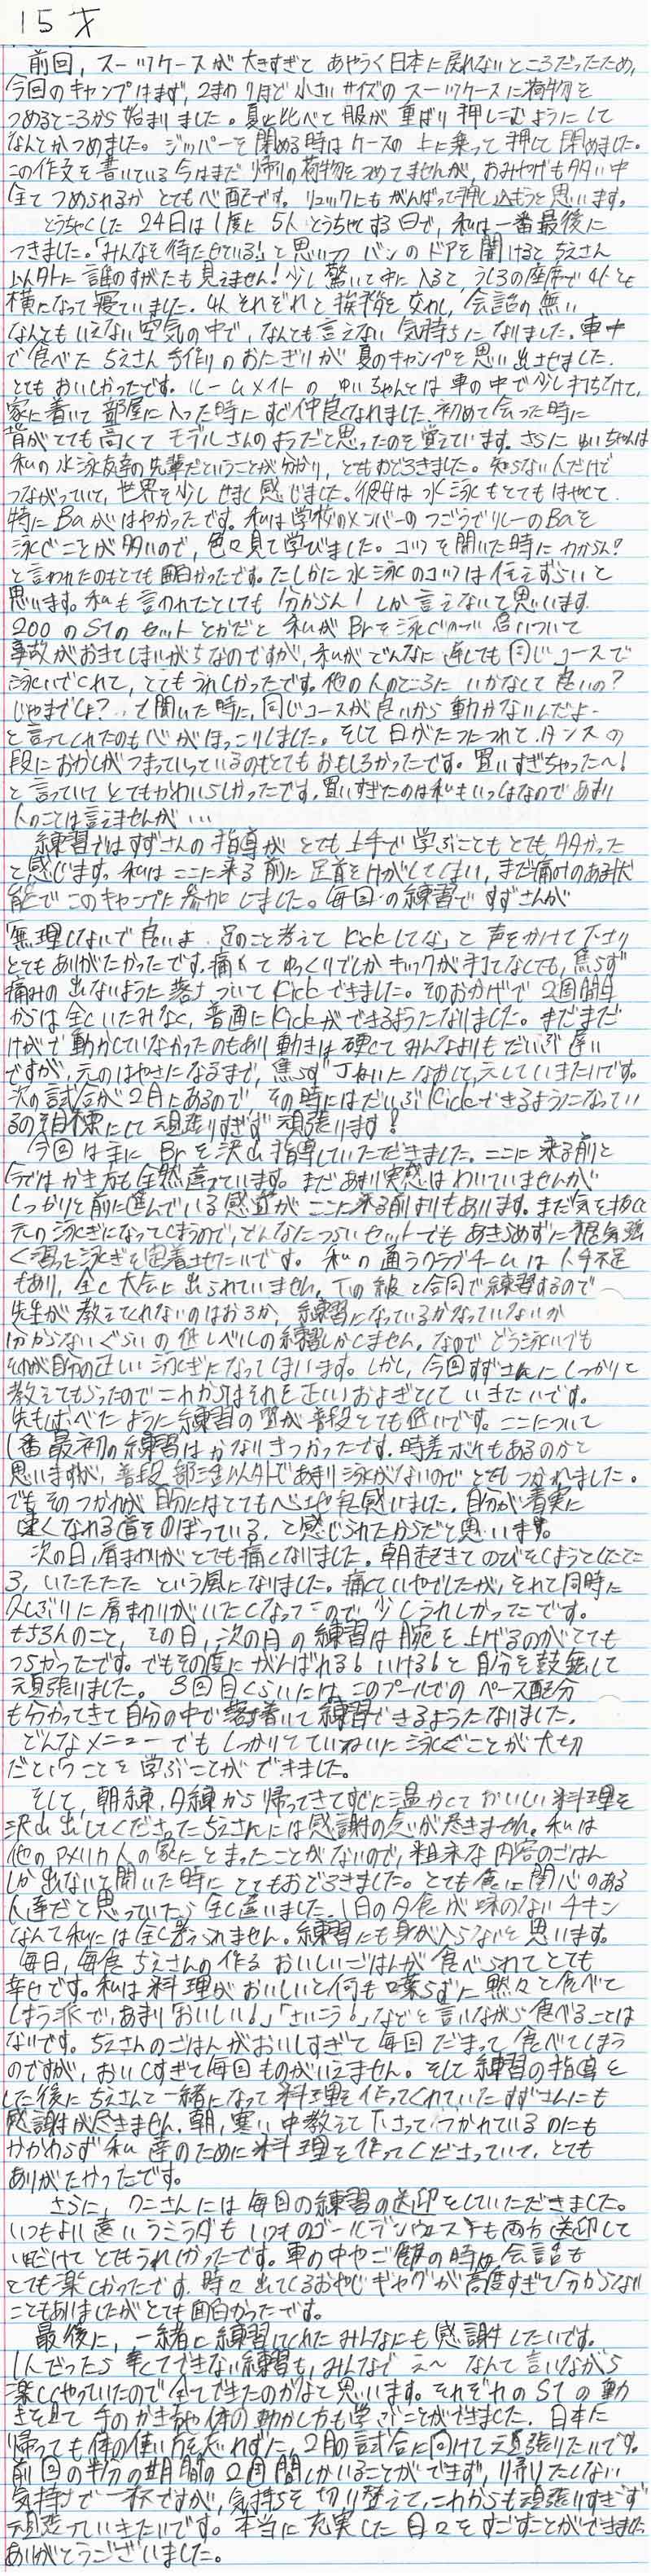 15才
前回、スーツケースが大きすぎて あやうく日本に戻れないところだったため、
今回のキャンプはまず、2まわりほど小さいサイズのスーツケースに荷物を
つめるところから始まりました。夏と比べて服が重ばり押しこむようにして
なんとかつめました。ジッパーを閉める時はケースの上に乗って押して閉めました。
この作文を書いている今はまだ帰りの荷物をつめてませんが、おみやげも多い中
全てつめられるかとても心配です。リュックにもがんばって押し込もうと思います。
とうちゃくした24日は1度に5人とうちゃくする日で、私は一番最後に
つきました。「みんなを待たせている!」と思いつつバンのドアを開けるとちえさん
以外に誰のすがたも見えません!少し驚いて中に入ると、うしろの座席で4人とも
横になって寝ていました。4人それぞれと挨拶を交わし、会話の無い
なんともいえない空気の中で、なんとも言えない気持ちになりました。車中
で食べたちえさん手作りのおにぎりが夏のキャンプを思い出させました。
とてもおいしかったです。ルームメイトのゆいちゃんとは車の中で少し打ちとけて、
家に着いて部屋に入った時にすぐ仲良くなれました。初めて会った時に
背がとても高くてモデルさんのようだと思ったのを覚えています。さらにゆいちゃんは
私の水泳友達の先輩だということが分かり、とてもおどろきました。知らない人だけど
つながっていて、世界を少しせまく感じました。彼女は水泳もとてもはやくて
特にBaがはやかったです。私は学校のメンバーのつごうでリレーのBaを
泳ぐことが多いので、色々見て学びました。コツを聞いた時にわからん!
と言われたのもとても面白かったです。たしかに水泳のコツは伝えずらいと
思います。私も言われたとしても分からん!しか言えないと思います。
200のS1のセットとかだと私がBrを泳ぐので追いついて
事故がおきてしまいがちなのですが、私がどんなに遅しても同じコースで
泳いでくれて、とてもうれしかったです。他の人のところにいかなくて良いの?
じゃまでしょ?..て聞いた時に、同じコースが良いから動かないんだよー
と言ってくれたのも心がほっこりしました。そして日がたつにつれて、タンスの
段におかしがつまっていっているのもとてもおもしろかったです。買いすぎちゃった〜!
と言っていてとてもかわいらしかったです。買いすぎたのは私もいっしょなのであまり
人のことは言えませんが…
練習ではすずさんの指導がとても上手で学ぶこともとても多かった
と感じます。私はここに来る前に足首をけがしてしまい、まだ痛みのある状
態でこのキャンプに参加しました。毎回の練習ですずさんが
「無理しないで良いよ、足のこと考えてKickしてな」と声をかけて下さり
とてもありがたかったです。痛くてゆっくりでしかキックが打てなくても、焦らず
痛みの出ないように落ちついてKickできました。そのおかげで2週間目
からは全くいたみなく、普通にKickができるようになりました。まだまだ
けがで動かしていなかったのもあり動きは硬くてみんなよりもだいぶ遅い
ですが、元のはやさになるまで、焦らずていねいになおして、元していきたいです。
次の試合が2月にあるので、その時にはだいぶKickできるようになってい
るのを目標にして頑張りすぎず頑張ります!
今回は主にBrを沢山指導していただきました。ここに来る前と
今ではかき方も全然違っています。まだあまり実感はわいていませんが
しっかりと前に進んでいる感覚がここに来る前よりもあります。まだ気を抜くと
元の泳ぎになってしまうので、どんなにつらいセットでもあきらめずに根気強
く習った泳ぎを定着させたいです。私の通うクラブチームは人手不足
もあり、全く大会に出られていません。下の級と合同で練習するので
先生が教えてくれないのはおろか、練習になっているかなっていないか
分からないぐらいの低レベルの練習しかしません。なのでどう泳いでも
それが自分の正しい泳ぎになってしまいます。しかし、今回すずさんにしっかりと
教えてもらったのでこれからはそれを正しいおよぎとしていきたいです。
先も述べたように練習の質が普段とても低いです。ここについて
1番最初の練習はかなりきつかったです。時差ボケもあるのかと
思いますが、普段部活以外であまり泳がないのでとてもつかれました。
でもそのつかれが自分にはとても心地良く感じました。自分が着実に
速くなれる道をのぼっている、と感じられたからだと思います。
次の日、肩まわりがとても痛くなりました。朝起きてのびをしようとしたとこ
ろ、いたたたたという風になりました。痛くていやでしたが、それと同時に
久しぶりに肩まわりがいたくなったので少しうれしかったです。
もちろんのこと、その日、次の日の練習は腕を上げるのがとても
つらかったです。でもその度にがんばれる!いける!と自分を鼓舞して
頑張りました。3回目くらいには、このプールでのペース配分
も分かってきて自分の中で落ち着いて練習できるようになりました。
どんなメニューでもしっかりていねいに泳ぐことが大切
だということを学ぶことができました。
そして、朝練、夕練から帰ってきてすぐに温かくておいしい料理を
沢山出してくださったちえさんには感謝の念が尽きません。私は
他のアメリカ人の家にとまったことがないので、粗末な内容のごはん
しか出ないと聞いた時にとてもおどろきました。とても食に関心のある
人達だと思っていたら全く違いました。1日の夕食が味のないチキン
なんて私には全く考えられません。練習にも身が入らないと思います。
毎日、毎食ちえさんの作るおいしいごはんが食べられてとても
幸せです。私は料理がおいしいと何も喋らずに黙々と食べて
しまう派で、あまり「おいしい!」「さいこう!」などと言いながら食べることは
ないです。ちえさんのごはんがおいしすぎて毎回だまって食べてしまう
のですが、おいしすぎて毎回ものがいえません。そして練習の指導を
した後にちえさんと一緒になって料理を作ってくれていたすずさんにも
感謝が尽きません。朝、寒い中教えて下さってつかれているのにも
かかわらず私達のために料理を作ってくださっていて、とても
ありがたかったです。
さらに、クニさんには毎日の練習の送迎をしていただきました。
いつもより遠いラミラダもいつものゴールデンウエストも両方送迎して
いただけてとてもうれしかったです。車の中やご飯の時の会話も
とても楽しかったです。時々出てくるおやじギャグが高度すぎて分からない
こともありましたがとても面白かったです。
最後に、一緒に練習してくれたみんなにも感謝したいです。
1人だったら辛くてできない練習も、みんなでえ〜なんて言いながら
楽しくやっていたので全てできたのかなと思います。それぞれのS1の動
きを見て手のかき方や体の動かし方も学ぶことができました。日本に
帰っても体の使い方を忘れずに、2月の試合に向けて頑張りたいです。
前回の半分の期間の2週間しかいることができず、帰りたくない
気持ちで一杯ですが、気持ちを切り替えて、これからも頑張りすぎず
頑張っていきたいです。本当に充実した日々をすごすことができました。
ありがとうございました。